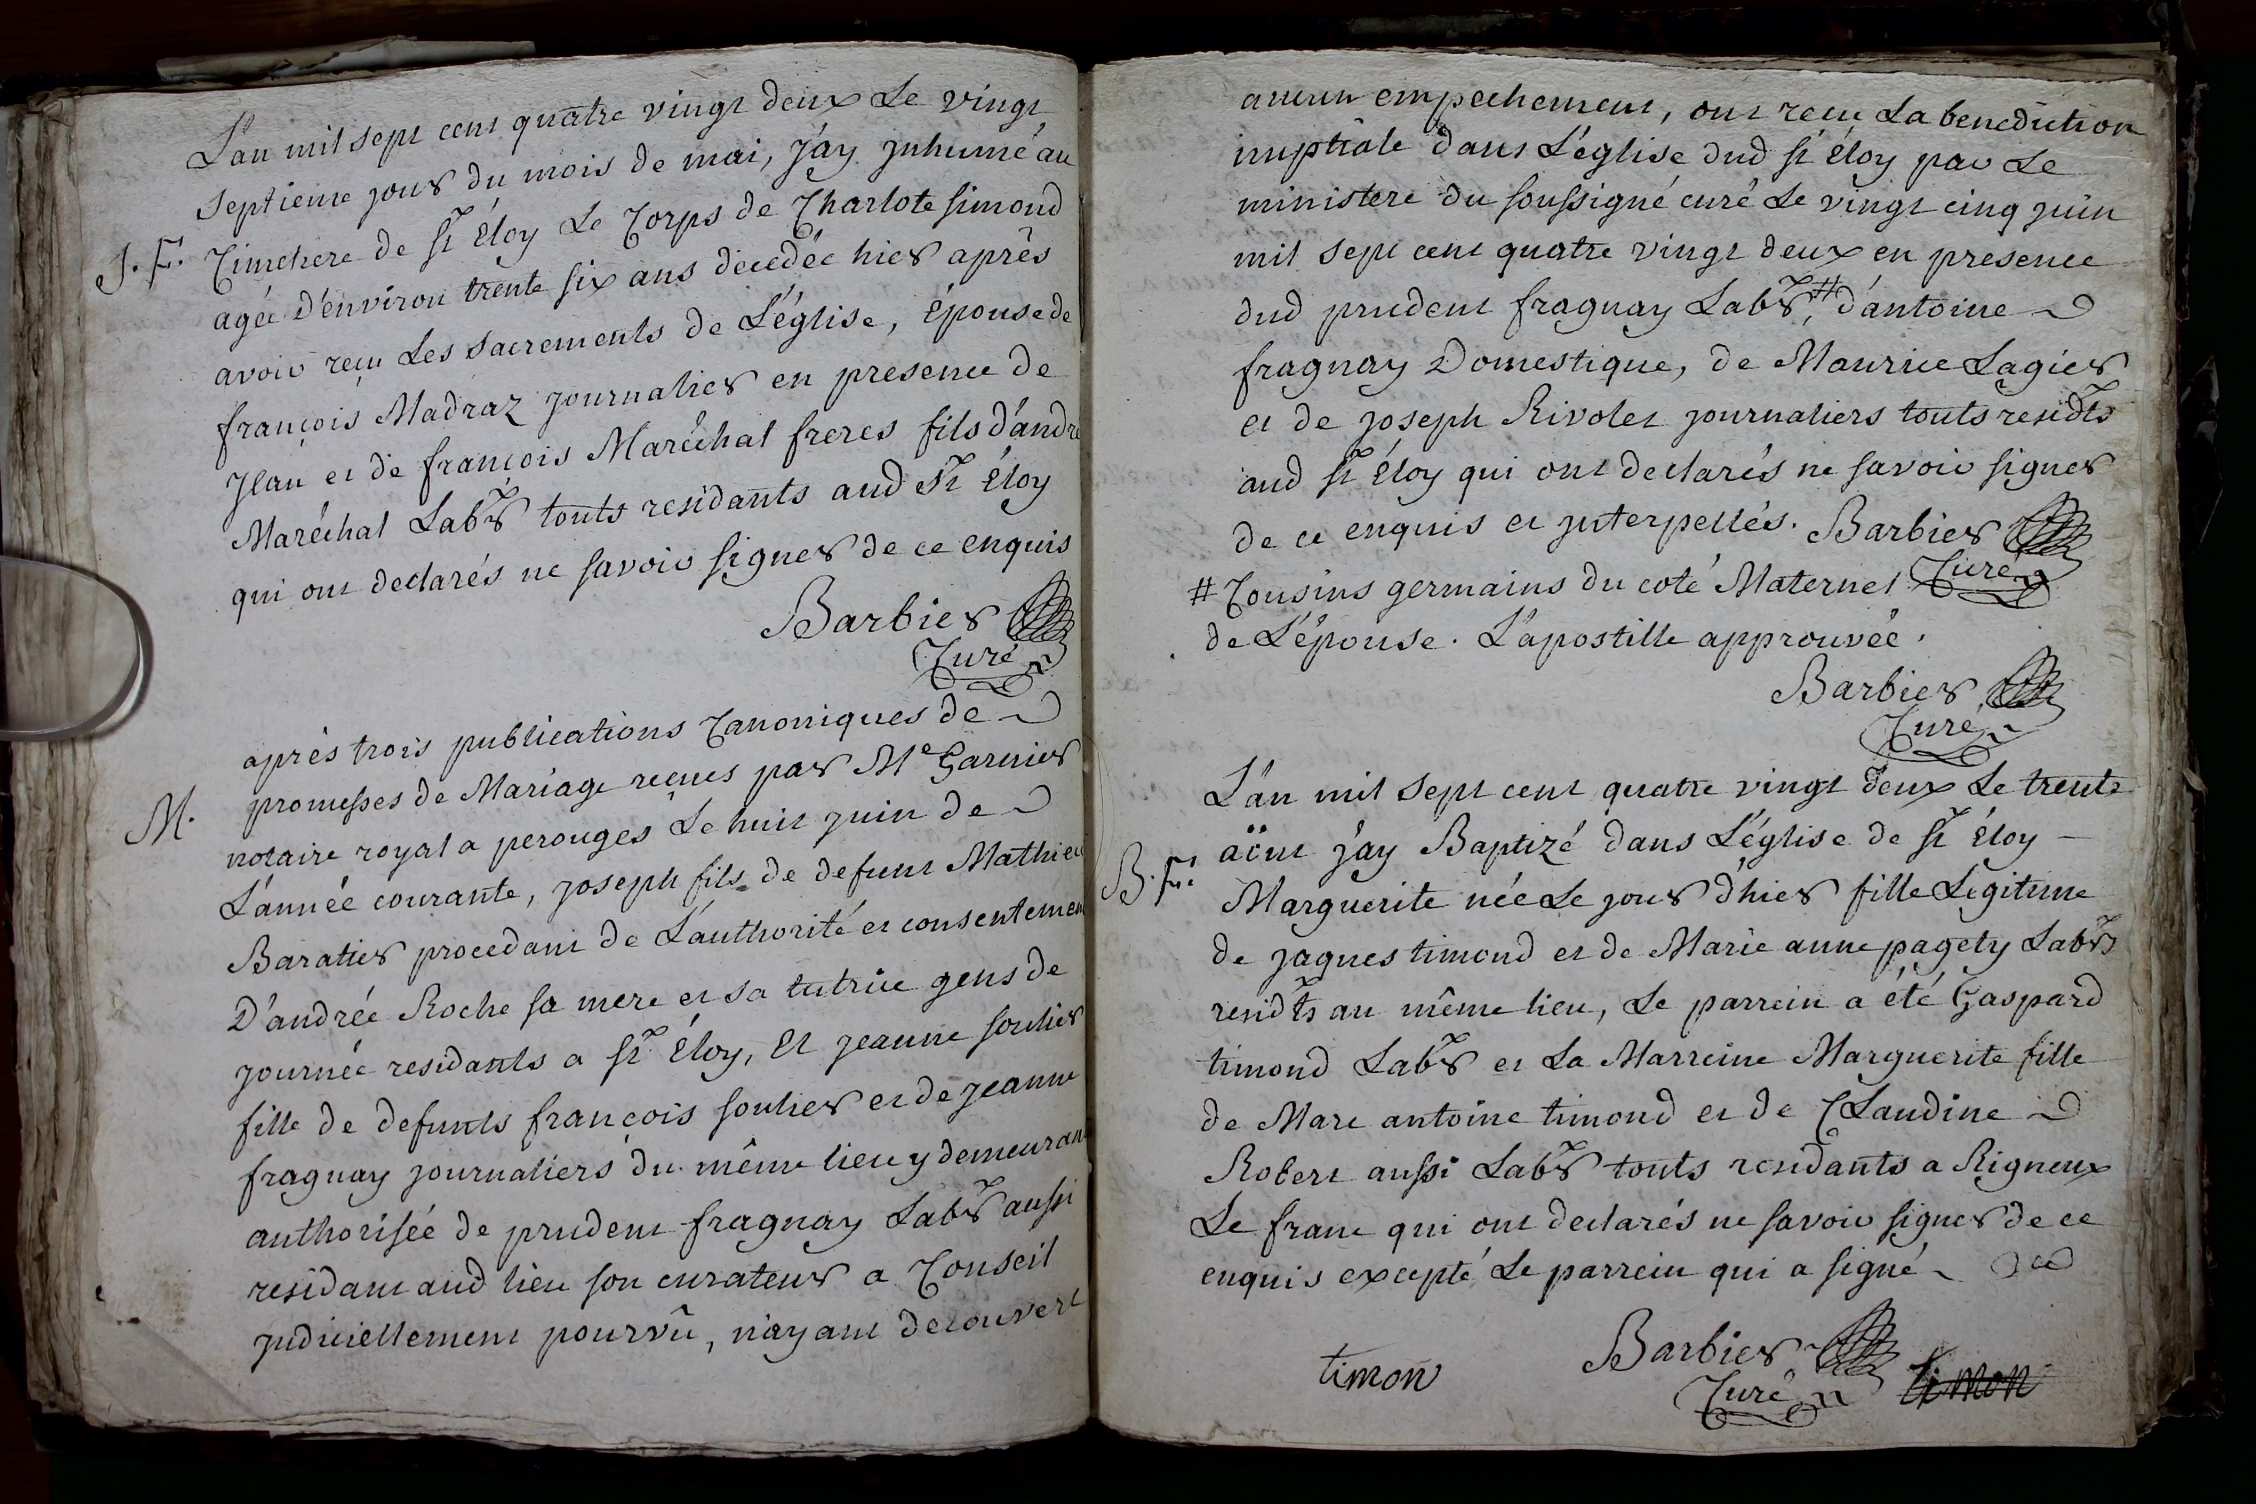 L'an mil sept cent quatre vingt deux Le vingt
septieme jour du mois de mai, j'ay inhumé au
J. F. Cimetiere de st Éloy Le Corps de Charlote simond
agée D'environ trente six ans decedée hier après
avoir reçu Les sacrements de L'église, épouse de
françois Madraz journalier en presence de
Jean et de françois Maréchal freres fils d'andré
Maréchal Labr touts residants aud st Éloy
qui ont declarés ne savoir signer de ce enquis
Barbier
Curé
après trois publications Canoniques de
M. promesses de Mariage reçues par Me Garnier
notaire royal a perouges Le huit juin de
L'année courante, joseph fils de defunt Mathieu
Baratier procedant de L'authorité et consentement
D'andrée Roche sa mere et sa tutrice gens de
journée residants a st Éloy, Et jeanne soulier
fille de defunts françois soulier et de jeanne
fragnay journaliers du même lieu y demeurant
authorisée de prudent fragnay Labr aussi
residant aud lieu son curateur a Conseil
judiciellement pourvû, n'ayant decouvert
aucun empechement, ont reçu La benediction
nuptiale dans L'église dud st Éloy par Le
ministere du soussigné curé Le vingt cinq juin
mil sept cent quatre vingt deux en presence
dud prudent fragnay Labr, # d'antoine
fragnay Domestique, de Maurice Lagier
et de joseph Rivolet journaliers touts residts
aud st Éloy qui ont declarés ne savoir signer
de ce enquis et interpellés. Barbier
Curé
# Cousins germains du coté Maternel
de L'épouse. L'apostille approuvée.
Barbier
Curé
L'an mil sept cent quatre vingt deux Le trente
B. F. aöut j'ay Baptizé dans L'église de st Éloy
Marguerite née Le jour d'hier fille Legitime
de jaques timond et de Marie anne pagety Labrs
residts au même lieu, Le parrein a été Gaspard
timond Labr et La Marreine Marguerite fille
de Marc antoine timond et de Claudine
Robert aussi Labr touts residants a Rigneux
Le franc qui ont declarés ne savoir signer de ce
enquis excepté Le parrein qui a signé
timon Barbier timon
Curé